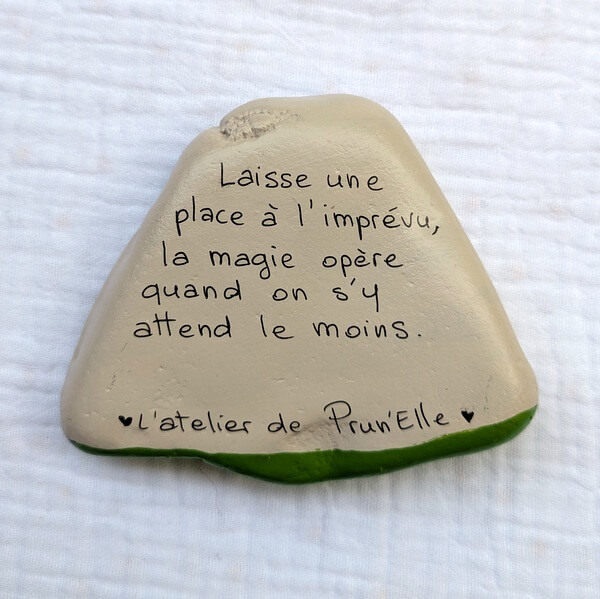 Laisse une
place à l'imprévu,
la magie opère
quand on s'y
attend le moins.
♥L'atelier de Prun'Elle ♥